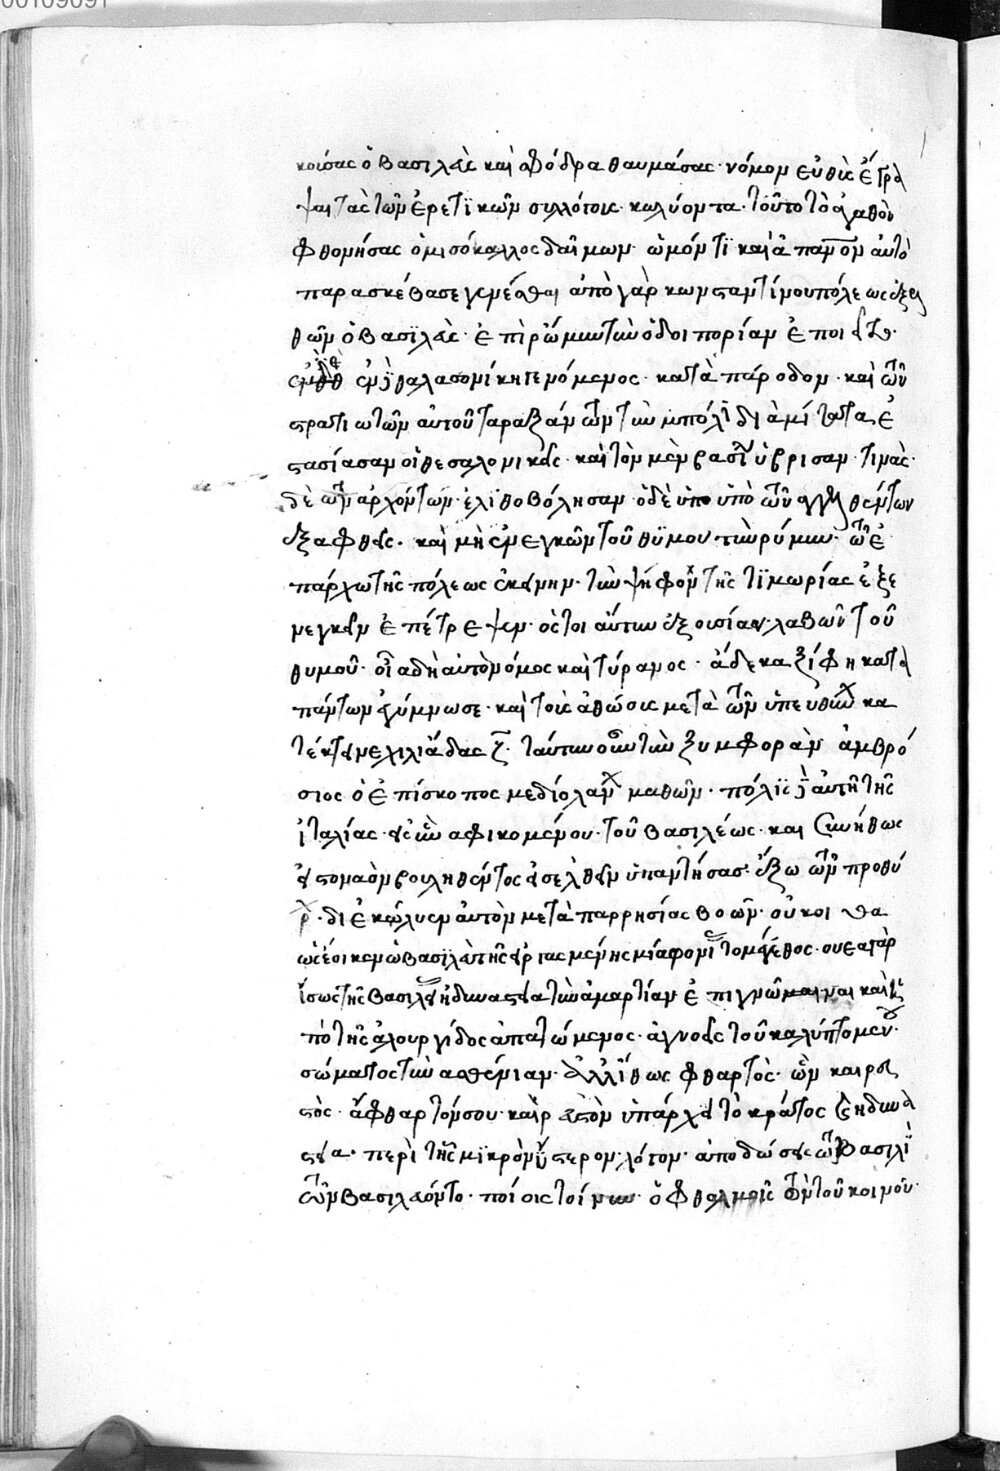 κούσας ὁ βασιλεὺς καὶ σφόδρα θαυμάσας· νόμον εὐθὺς ἔγρα
ψαι τὰς τῶν ἐρετϊκῶν συλλόγους· καλύοντα· τοῦτο τὸ ἀγαθὸν
φθονήσας ὁ μισόκαλλος δαίμων· ὠμόν τϊ καὶ ἀπάν̅ον αὐτὸ
παρασκέβασε γενέσθαι ἀπὸ γὰρ κωνσταντίνουπόλεως ἐξελ
θῶν ὁ βασϊλεὺς· ἐπὶ ρώμην τὴν ὁδοιπορίαν ἐποιεῖτο·
θαλασονίκη γενόμενος· κατὰ πάροδον· καὶ τῶν
στρατιωτῶν αὐτοῦ ταραξάντων τὴν πόλϊ διὰ μιτάτα ἐ
στασίασαν οἱ θεσαλονικεῖς· καὶ τὸν μὲν βασιλέα ὕβρισαν· τινὰς
δὲ τῶν ἀρχόντων· ἐλιθοβόλησαν· ὁ δὲ ὑπο ὑπὸ τῶν ἀγγελθέντων
ἐξαφθεὶς· καὶ μὴ ἐνεγκῶν τοῦ θϋμου τὴν ρύμην· τῶ ἐ
πάρχω τῆς πόλεως ἐκείνην· τὴν ψήφον τῆς τϊμωρίας ἐξε
νεγκεῖν ἐπέτρεψεν· ὅς τοιαύτην ἐξουσίαν λαβῶν τοῦ
θυμοῦ· οἷα δὴ αὐτόνομος καὶ τύρανος· ἄδεκα ξίφη κατὰ
πάντων ἐγύμνωσε· καὶ τοὺς ἀθώους μετὰ τῶν ὑπευθύνων κα
τέκτεινε χιλιάδας ζ̅· ταύτην οὖν τὴν ξυμφορὰν ἀμβρό
σιος ὁ ἐπίσκοπος μεδιολάνων μαθῶν· πόλϊς δὲ αὐτὴ τῆς
ἰταλίας· εἰς ἣν ἀφικομένου· τοῦ βασιλέως· και συνήθως
εἰς τὸν ναὸν βουληθέντος εἰσελθεῖν ὑπαντήσας· ἔξω τῶν προθύ
ρων· διεκώλυεν αὐτὸν μετὰ παρρησίας βοῶν· οὐκ οισθα
ὡς ἔοικεν ὦ βασϊλεῦ τῆς εἰργασμένης μιαφονίας το μέγεθος· ου εα γὰρ
ἴσως τῆς βασιλείας ἡ δυναστεία τὴν ἁμαρτίαν ἐπιγνῶναι ναι καὶ ὑ
πὸ τῆς ἁλουργίδος ἀπατώμενος· ἀγνοεῖς τοῦ καλύπτομένου
σώματος τὴν ασθένιαν· ἀλλ' ἴσθως φθαρτὸς· ὢν καιρος
τὸς· ἄφθαρτον σου·
στεία· περὶ τῆς μϊκρὸν ὕστερον· λόγον· ἀποδώσεις τῶ βασιλεῖ
τῶν βασιλευόντων· ποίοις τοίνυν ὀφθαλμοῖς τὸν τοῦ κοινοῦ·